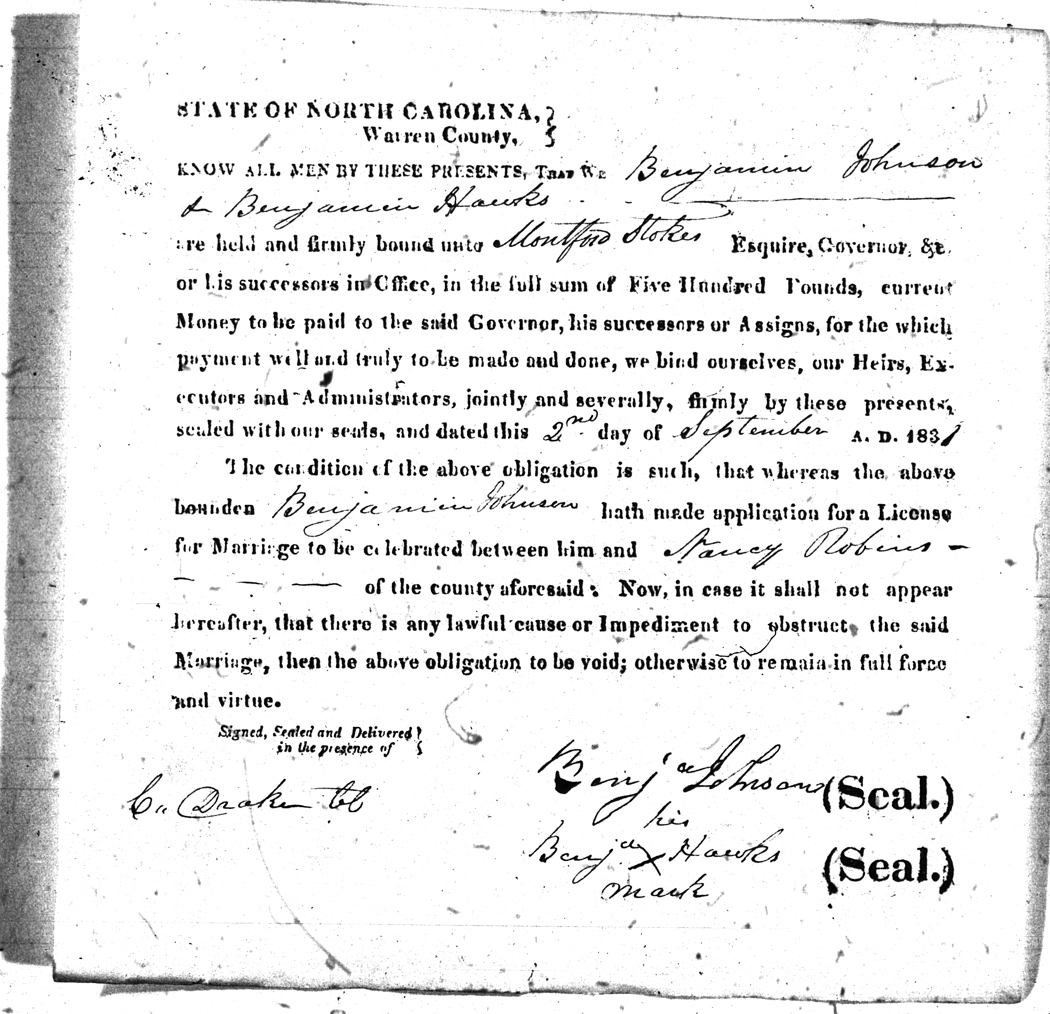 STATE OF NORTH CAROLINA, }
Warren County, }
KNOW ALL MEN BY THESE PRESENTS, THAT WE Benjamin Johnson
& Benjamin Hawks
are held and firmly bound unto Montford Stokes Esquire, Governor, &c.
or his successors in Office, in the full sum of Five Hundred Pounds, current
Money to be paid to the said Governor, his successors or Assigns, for the which
payment well and truly to be made and done, we bind ourselves, our Heirs, Ex-
ecutors and Administrators, jointly and severally, firmly by these presents,
sealed with our seals, and dated this 2nd day of September A. D. 1831
The condition of the above obligation is such, that whereas the above
bounden Benjamin Johnson hath made application for a License
for Marriage to be celebrated between him and Nancy Robins -
- - — of the county aforesaid: Now, in case it shall not appear
hereafter, that there is any lawful cause or Impediment to obstruct the said
Marriage, then the above obligation to be void; otherwise to remain in full force
and virtue.
Signed, Sealed and Delivered }
in the presence of }
Benja Johnson (Seal.)
his
Benja X Hawks (Seal.)
mark
Drake